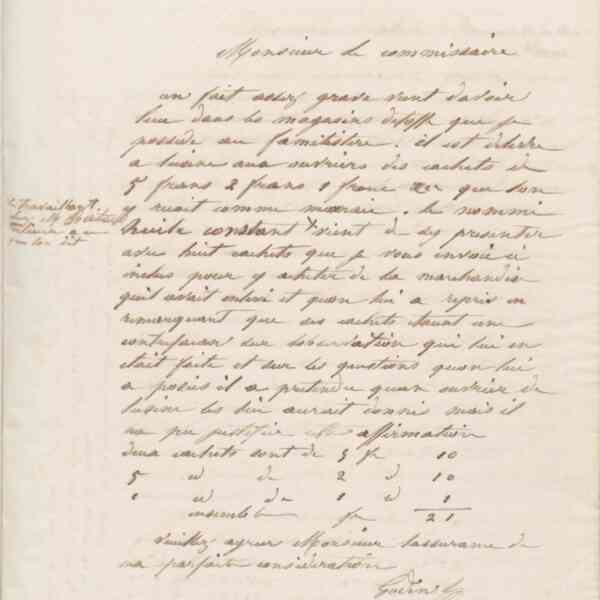 Monsieur le commissaire
un fait assez grave vient davoir
lieu dans les magasins detoffe que je
possede au familistere. il est delivre
a lusine aux ouvriers des cachets de
5 frans 2 frans 1 franc que lon
y recoit comme monaie. le nommé
huile constant vient de sy presenter
avec huit cachets que je vous envoie ci
inclus pour y acheter de la marchandise
quil avait enlevé et quon lui a repris en
remarquant que ces cachets etaient une
contrefacon sur lobservation qui lui en
etait faite et sur les questions quon lui
a posées il a pretendu quun ouvrier de
lusine les lui aurait donnés mais il
na pu justifier affirmation
deux cachets sont de 5 fr 10
5 id de 2 id 10
1 id de 1 id 1
ensemble fr 21
veuillez agreer Monsieur lassurance de
ma parfaite consideration
Godin
travaillant
chez M